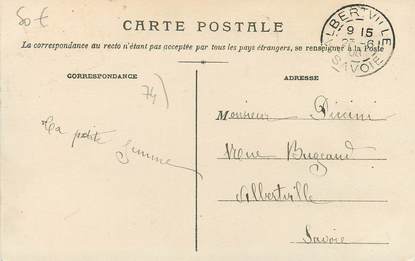 50 €
CARTE POSTALE
La correspondance au recto n'étant pas acceptée par tous les pays étrangers, se renseigner à la Poste
CORRESPONDANCE
ADRESSE
ALBERTVILLE
9 15
23-6
SAVOIE
74)
Ta petite femme
Monsieur Piccini
Rue Bugeaud
Albertville
Savoie